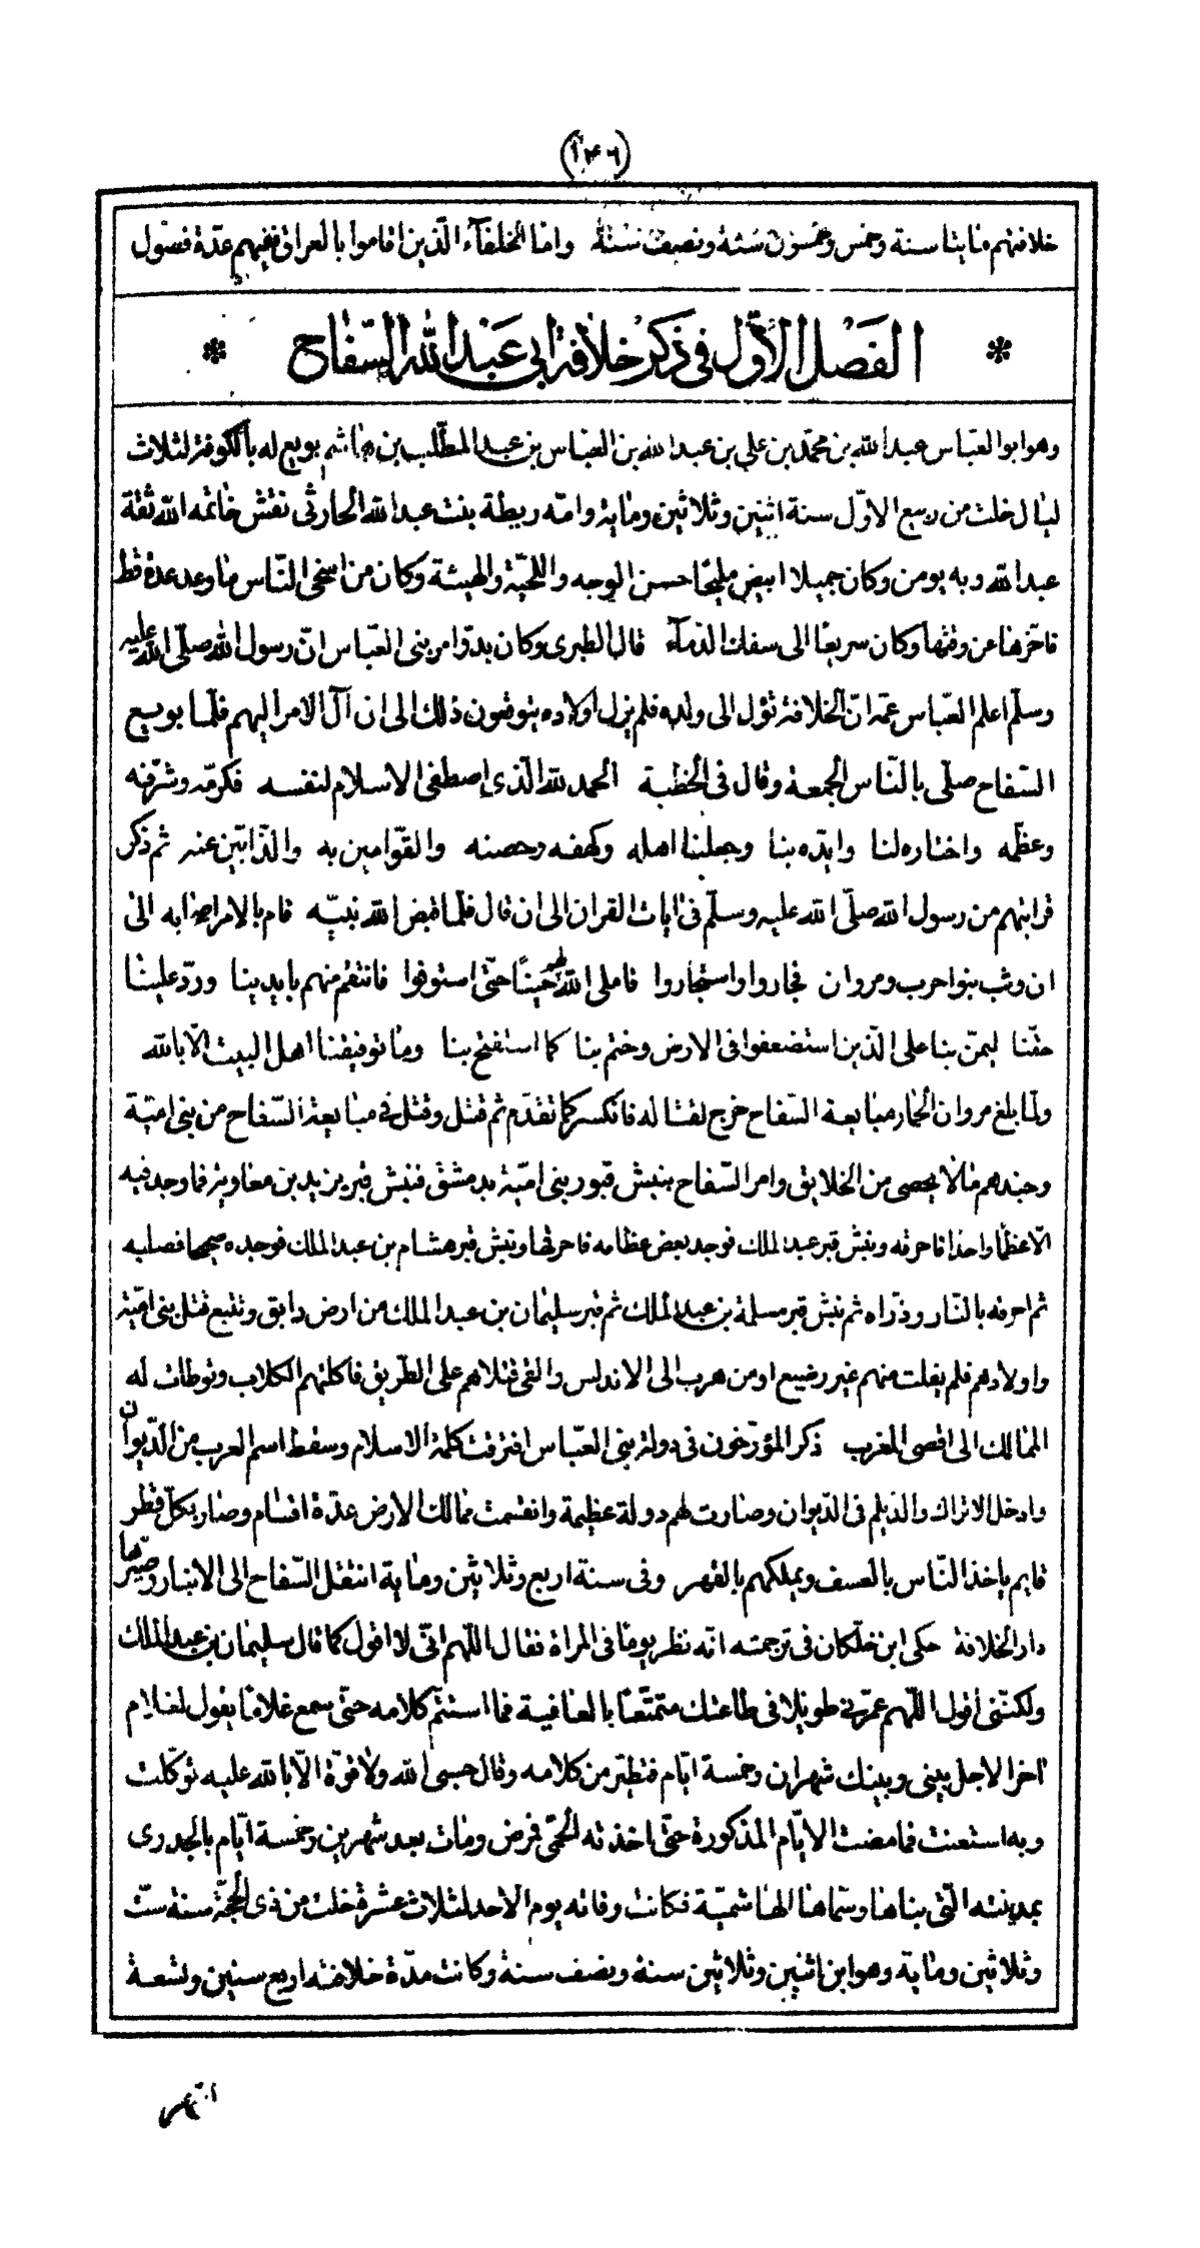 (١٤٦)
خلافتهم مايتا سنة وخمس وخمسون سنة ونصف سنة واما الخلفآء الّذين اقاموا بالعراق ففيهم عدّة فصول
* الفَصْل الاَوّل فى ذكر خلافة ابى عَبْد الله السّفاح *
وهو ابو العبّاس عبد الله بن محمّد بن علي بن عبد الله بن العبّاس بن عبد المطّلب بن هاشم بويع له بالكوفة لثلاث
ليال خلت من ربيع الاوّل سنة اثنين وثلاثين ومايه وامّه ريطة بنت عبد الله الحارثى نقش خاتمه الله ثقة
عبد الله وبه يومن وكان جميلا ابيض مليحًا حسن الوجه واللحيّة والهيئة وكان من اسخى النّاس ما وعد عدة قط
فاخّرها عن وقتها وكان سريعًا الى سفك الدّمآء قال الطبرى وكان بدؤ امر بنى العبّاس انّ رسول الله صلّى الله عليه
وسلّم اعلم العبّاس عمّه انّ الخلافة تؤل الى ولده فلم يزل اولاده يتوقعون ذلك الى ان آل الامر اليهم فلّما بويع
السّفاح صلّى بالنّاس الجمعة وقال فى الخطبة الحمد لله الّذي اصطفى الاسلام لنفسه فكرمّه وشرّفه
وعظّمه واختاره لنا وايدّه بنا وجعلنا اهله وكهفه وحصنه والقوّامين به والذّابّين عنه ثم ذكر
قرابتهم من رسول الله صلّى الله عليه وسلّم فى ايات القران الى ان قال فلّما قبض الله نبيّه قام بالامر اصحابه الى
ان وثب بنوا حرب ومروان فجاروا واستجاروا فاملى الله لهم حينًا حتّى استوفوا فانتقم منهم بايدينا وردّ علينا
حقّنا ليمنّ بنا على الّذين استضعفوا فى الارض وختم بنا كما استفتح بنا وما توفيقنا اهل البيت الّا بالله
ولّما بلغ مروان الحمار مبايعة السّفاح خرج لقتاله فانكسر كما تقدّم ثم قتل وقتل فى مبايعة السّفاح من بنى اميّة
وجندهم مالا يحصى من الخلايق وامر السّفاح بنبش قبور بنى اميّة بدمشق فنبش قبر يزيد بن معاوية فما وجد فيه
الّا عظمًا واحدًا فاحرقه ونبش قبر عبد الملك فوجد بعض عظامه فاحرقها ونبش قبر هشام بن عبد الملك فوجده صحيحا فصلبه
ثم احرقه بالنّار وذرّاه ثم نبش قبر مسلمة بن عبد الملك ثم قبر سليمان بن عبد الملك من ارض دابق وتتبع قتل بنى اميّة
واولادهم فلم يفلت منهم غير رضيع او من هرب الى الاندلس والقى قتلاهم على الطّريق فاكلتهم الكلاب وتوطات له
الممالك الى اقصى المغرب ذكر المؤرّخون فى دولة بنى العبّاس افترقت كلمة الاسلام وسقط اسم العرب من الدّيوان
وادخل الاتراك والدّيلم فى الدّيوان وصارت لهم دولة عظيمة وانقسمت ممالك الارض عدّة اقسام وصار بكلّ قطر
قايم ياخذ النّاس بالعسف ويملكهم بالقهر وفى سنة اربع وثلاثين وماية انتقل السّفاح الى الانبار وصيّرها
دار الخلافة حكى ابن خلّكان فى ترجمته انّه نظر يومًا فى المراة فقال اللّهم انّى لا اقول كما قال سليمان بن عبد الملك
ولكنّنى اقول اللّهم عمّرنى طويلا فى طاعتك متمتّعًا بالعافية فما استتم كلامه حتّى سمع غلامًا يقول لغلام
اخر الاجل بينى وبينك شهران وخمسة ايّام فتطيّر من كلامه وقال حسبى الله ولا قوّة الّا بالله عليه توكّلت
وبه استعنت فما مضت الايّام المذكورة حتّى اخذته الحمّى فمرض ومات بعد شهرين وخمسة ايّام بالجدرى
بمدينته الّتى بناها وسمّاها الهاشميّة فكانت وفاته يوم الاحد لثلاث عشرة خلت من ذى الحجّة سنة ستّ
وثلاثين وماية وهو ابن اثنين وثلاثين سنة ونصف سنة وكانت مدّة خلافته اربع سنين وتسعة
اشهر